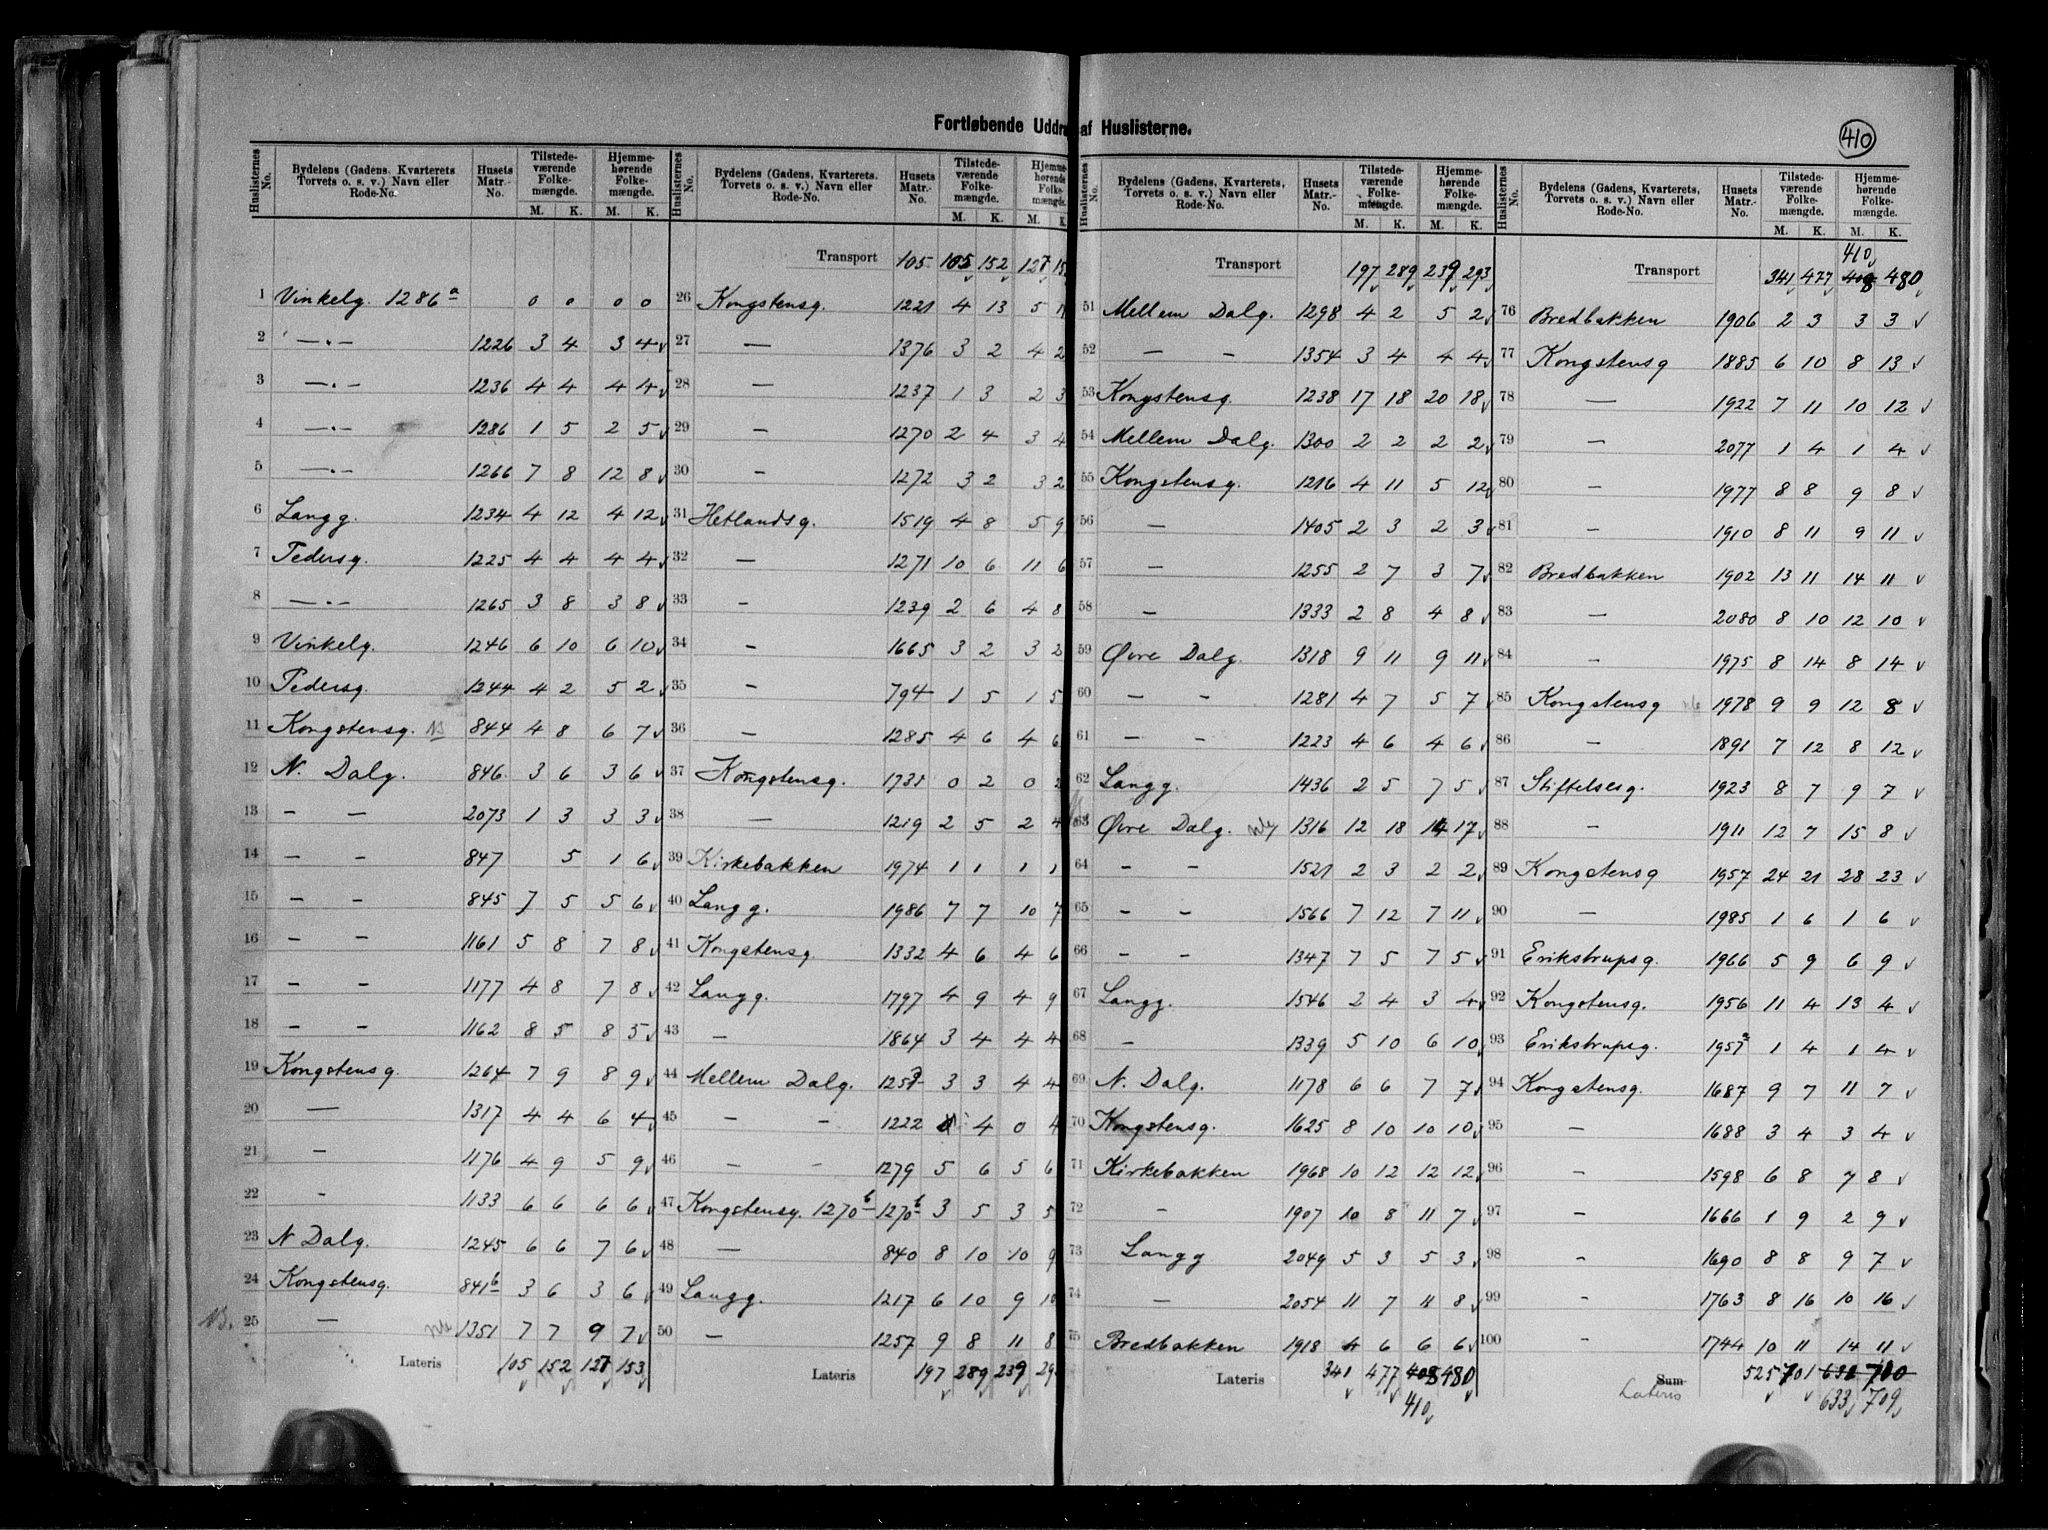 Fortløbende Uddr af Huslisterne.
410
Huslisternes No. Bydelens (Gadens, Kvarterets Torvets o. s. v.) Navn eller Rode-No. Husets Matr.-No. Tilstede-værende Folke-mængde. M. K. Hjemme-hørende Folke-mængde. M. K.
1 Vinkelg. 1286a 0 0 0 0
2 —"— 1226 3 4 3 4
3 —"— 1236 4 4 4 4
4 —"— 1286 1 5 2 5
5 —"— 1266 7 8 12 8
6 Langg. 1234 4 12 4 12
7 Pedersg. 1225 4 4 4 4
8 —"— 1265 3 8 3 8
9 Vinkelg. 1246 6 10 6 10
10 Pedersg. 1244 4 2 5 2
11 Kongstensg. 844 4 8 6 7
12 N. Dalg. 846 3 6 3 6
13 — — 2073 1 3 3 3
14 — — 847 5 1 6
15 — — 845 7 5 5 6
16 — — 1161 5 8 7 8
17 — — 1177 4 8 7 8
18 — — 1162 8 5 8 5
19 Kongstensg. 1264 7 9 8 9
20 — 1317 4 4 6 4
21 — 1176 4 9 5 9
22 — 1133 6 6 6 6
23 N Dalg. 1245 6 6 7 6
24 Kongstensg. 841b 3 6 3 6
25 — 1351 7 7 9 7
Lateris 105 152 127 153
Huslisternes No. Bydelens (Gadens, Kvarterets. Torvets o. s. v.) Navn eller Rode-No. Husets Matr.-No. Tilstede-værende Folke-mængde. M. K. Hjemme-hørende Folke-mængde. M. K.
Transport 105 105 152 127 15
26 Kongstensg. 1221 4 13 5
27 — 1376 3 2 4 2
28 — 1237 1 3 2 3
29 — 1270 2 4 3 4
30 — 1272 3 2 3 2
31 Hetlandsg. 1519 4 8 5 9
32 — 1271 10 6 11 6
33 — 1239 2 6 4 8
34 — 1665 3 2 3 2
35 — 794 1 5 1 5
36 — 1285 4 6 4 6
37 Kongstensg. 1731 0 2 0 2
38 — 1219 2 5 2 4
39 Kirkebakken 1974 1 1 1 1
40 Langg. 1986 7 7 10 7
41 Kongstensg. 1332 4 6 4 6
42 Langg. 1797 4 9 4 9
43 — 1864 3 4 4 4
44 Mellem Dalg. 3 3 4 4
45 — — 1222 4 0 4
46 — — 1279 5 6 5 6
47 Kongstensg. 1270b 1270b 3 5 3 5
48 — 840 8 10 10 9
49 Langg. 1217 6 10 9 10
50 — 1257 9 8 11 8
Lateris 197 289 239 29
Huslisternes No. Bydelens (Gadens, Kvarterets, Torvets o. s. v.) Navn eller Rode-No. Husets Matr.-No. Tilstede-værende Folke-mængde. M. K. Hjemme-hørende Folke-mængde. M. K.
Transport 197 289 239 293
51 Mellem Dalg. 1298 4 2 5 2
52 — — 1354 3 4 4 4
53 Kongstensg. 1238 17 18 20 18
54 Mellem Dalg. 1300 2 2 2 2
55 Kongstensg. 1216 4 11 5 12
56 — 1405 2 3 2 3
57 — 1255 2 7 3 7
58 — 1333 2 8 4 8
59 Øvre Dalg. 1318 9 11 9 11
60 — — 1281 4 7 5 7
61 — — 1223 4 6 4 6
62 Langg. 1436 2 5 7 5
63 Øvre Dalg. 1316 12 18 14 17
64 — — 1521 2 3 2 2
65 — — 1566 7 12 7 11
66 — — 1347 7 5 7 5
67 Langg. 1546 2 4 3 4
68 — 1339 5 10 6 10
69 N. Dalg. 1178 6 6 7 7
70 Kongstensg. 1625 8 10 10 10
71 Kirkebakken 1968 10 12 12 12
72 — 1907 10 8 11 7
73 Langg 2049 5 3 5 3
74 — 2054 11 7 11 8
75 Bredbakken 1918 4 6 6 6
Lateris 341 477 408 480
410
Huslisternes No. Bydelens (Gadens, Kvarterets, Torvets o. s. v.) Navn eller Rode-No. Husets Matr.-No. Tilstede-værende Folke-mængde. M. K. Hjemme-hørende Folke-mængde. M. K.
410
Transport 341 477 408 480
76 Bredbakken 1906 2 3 3 3
77 Kongstensg 1885 6 10 8 13
78 — 1922 7 11 10 12
79 — 2077 1 4 1 4
80 — 1977 8 8 9 8
81 — 1910 8 11 9 11
82 Bredbakken 1902 13 11 14 11
83 — 2080 8 10 12 10
84 — 1975 8 14 8 14
85 Kongstensg 1978 9 9 12 8
86 — 1891 7 12 8 12
87 Stiftelsesg. 1923 8 7 9 7
88 — 1911 12 7 15 8
89 Kongstensg 1957 24 21 28 23
90 — 1985 1 6 1 6
91 Erikstrupsg. 1966 5 9 6 9
92 Kongstensg. 1956 11 4 13 4
93 Erikstrupsg. 1957a 1 4 1 4
94 Kongstensg. 1687 9 7 11 7
95 — 1688 3 4 3 4
96 — 1598 6 8 7 8
97 — 1666 1 9 2 9
98 — 1690 8 8 9 7
99 — 1763 8 16 10 16
100 — 1744 10 11 14 11
Sum 525 701 631 710
Lateris 633 709